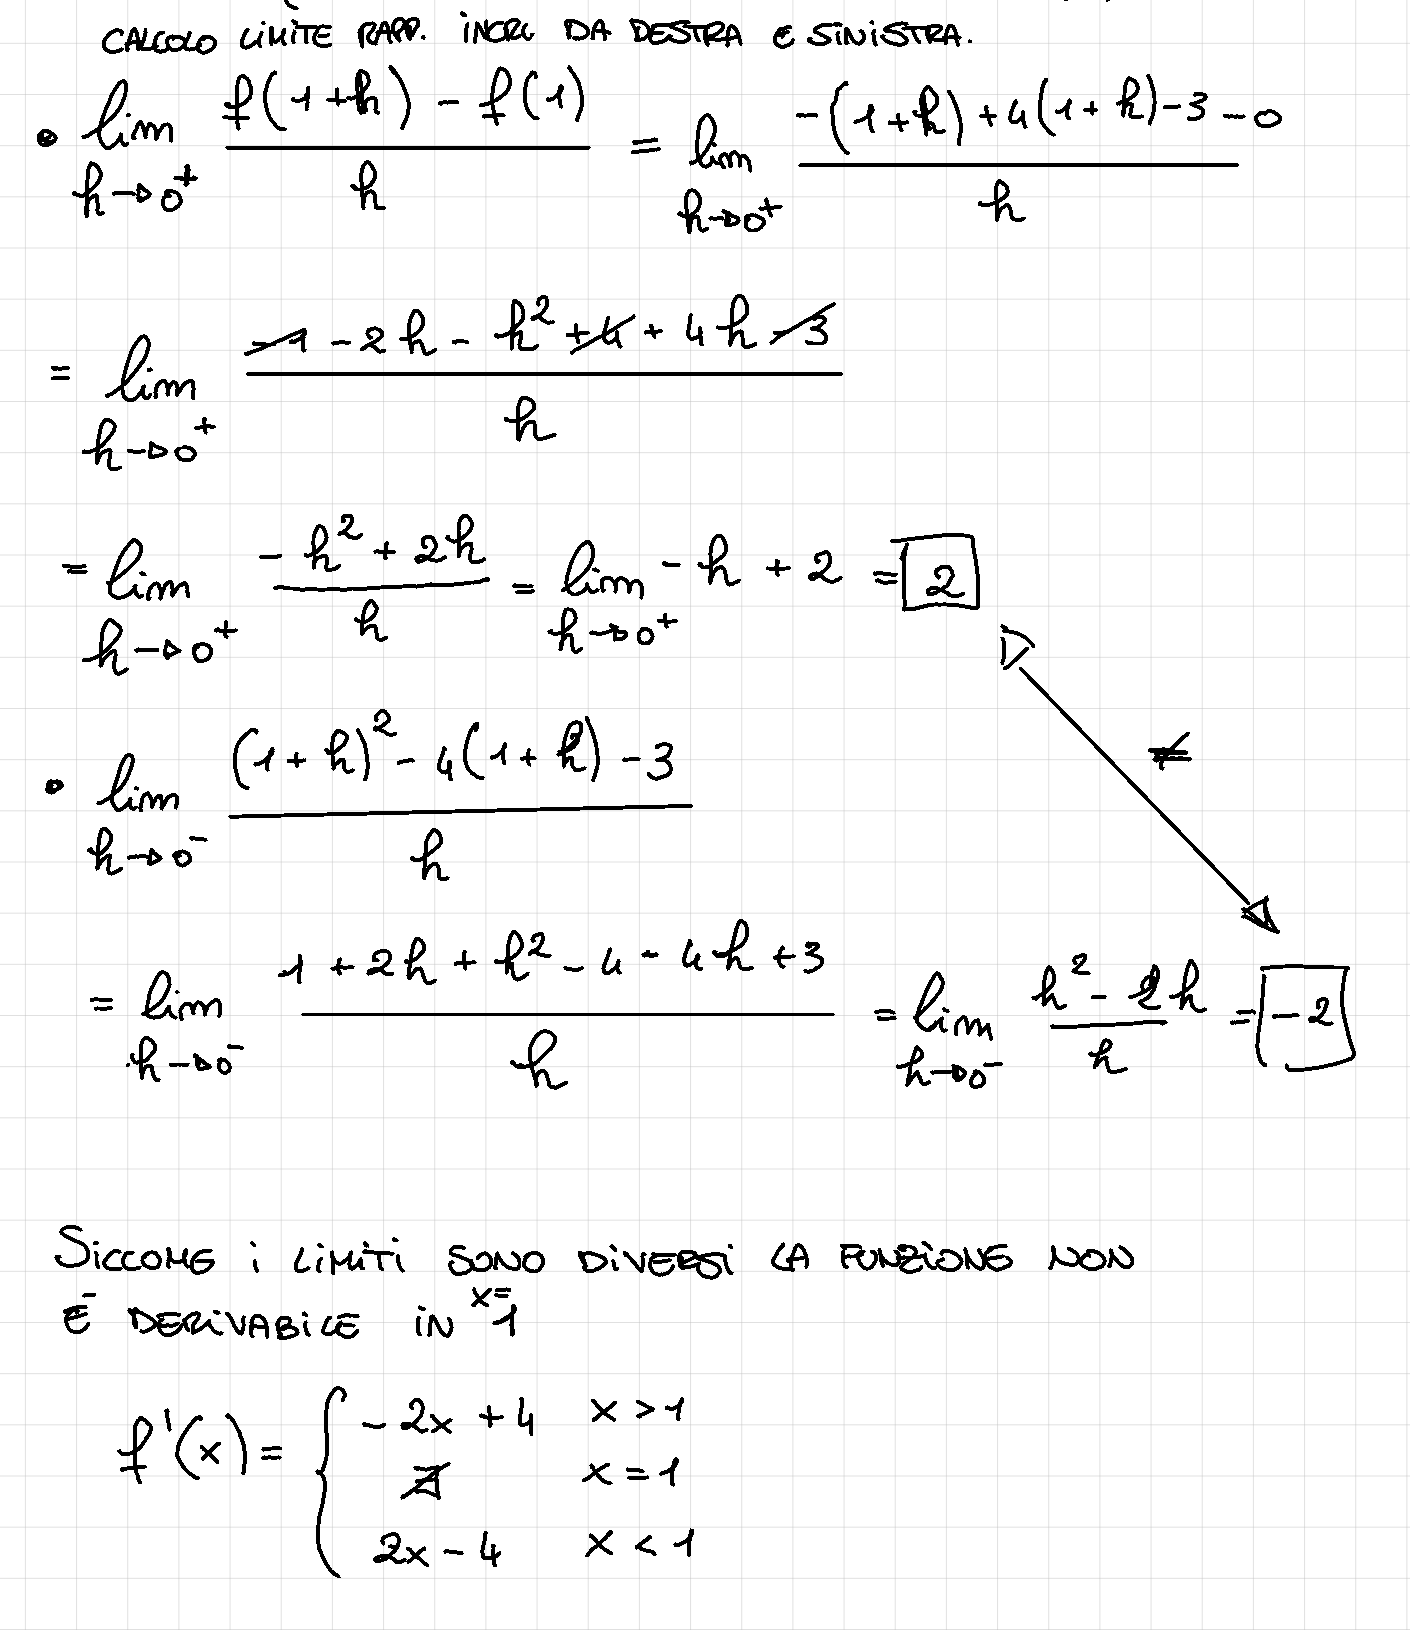 CALCOLO LIMITE RAPP. INCR. DA DESTRA E SINISTRA.
• lim h→0⁺ (f(1+h) - f(1))/h = lim h→0⁺ (-(1+h)+4(1+h)-3-0)/h
= lim h→0⁺ (-1-2h-h²+4+4h-3)/h
= lim h→0⁺ (-h²+2h)/h = lim h→0⁺ -h+2 = 2
≠
• lim h→0⁻ ((1+h)²-4(1+h)-3)/h
= lim h→0⁻ (1+2h+h²-4-4h+3)/h = lim h→0⁻ (h²-2h)/h = -2
SICCOME I LIMITI SONO DIVERSI LA FUNZIONE NON
È DERIVABILE IN x=1
f'(x) = { -2x+4 x>1
∄ x=1
2x-4 x<1